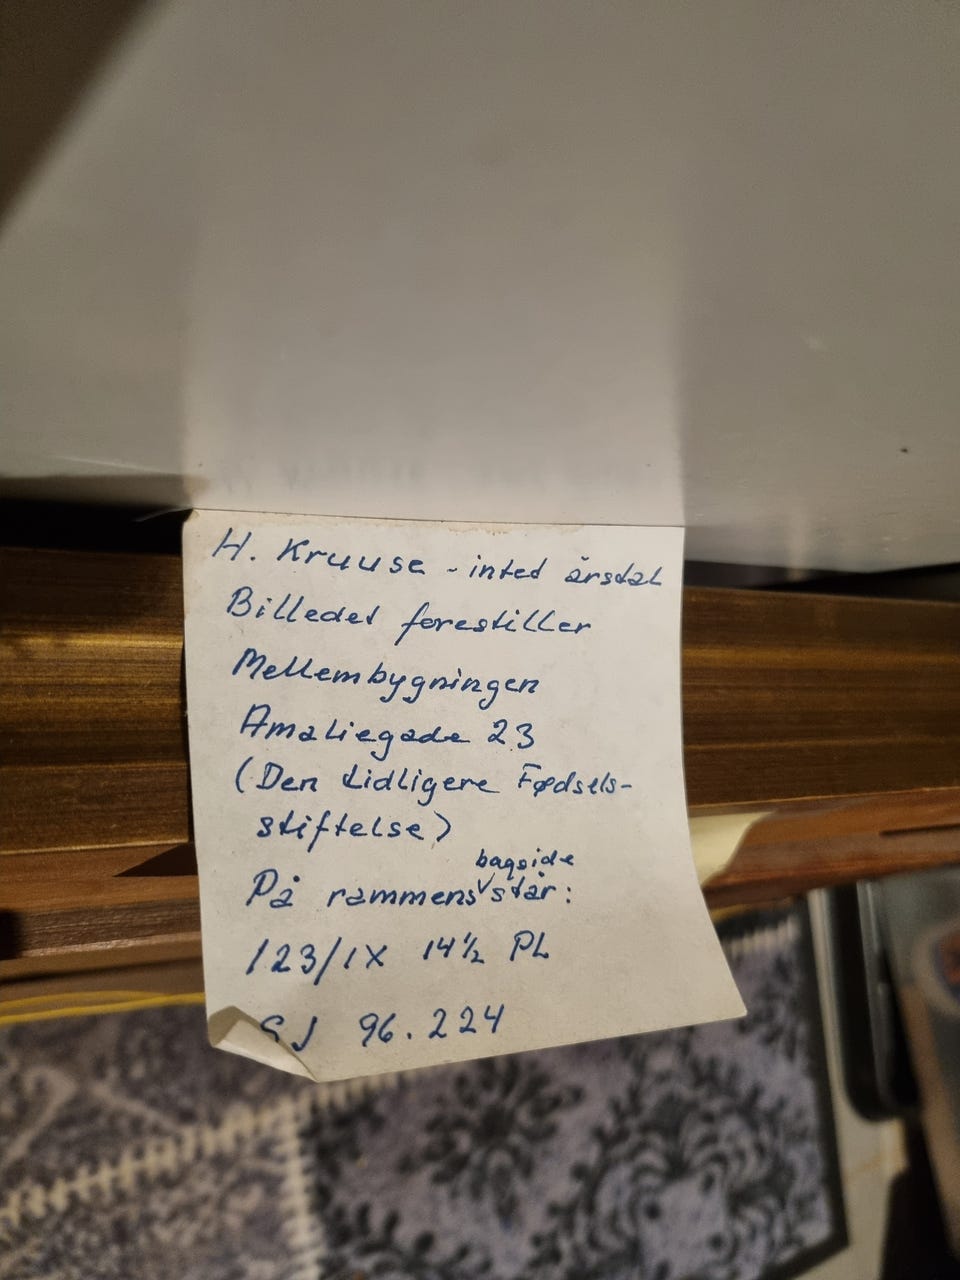 H. Kruuse - intet årstal
Billedet forestiller
Mellembygningen
Amaliegade 23
(Den tidligere Fødsels-
stiftelse)
På rammens bagside står:
123/IX 14½ PL
96.224